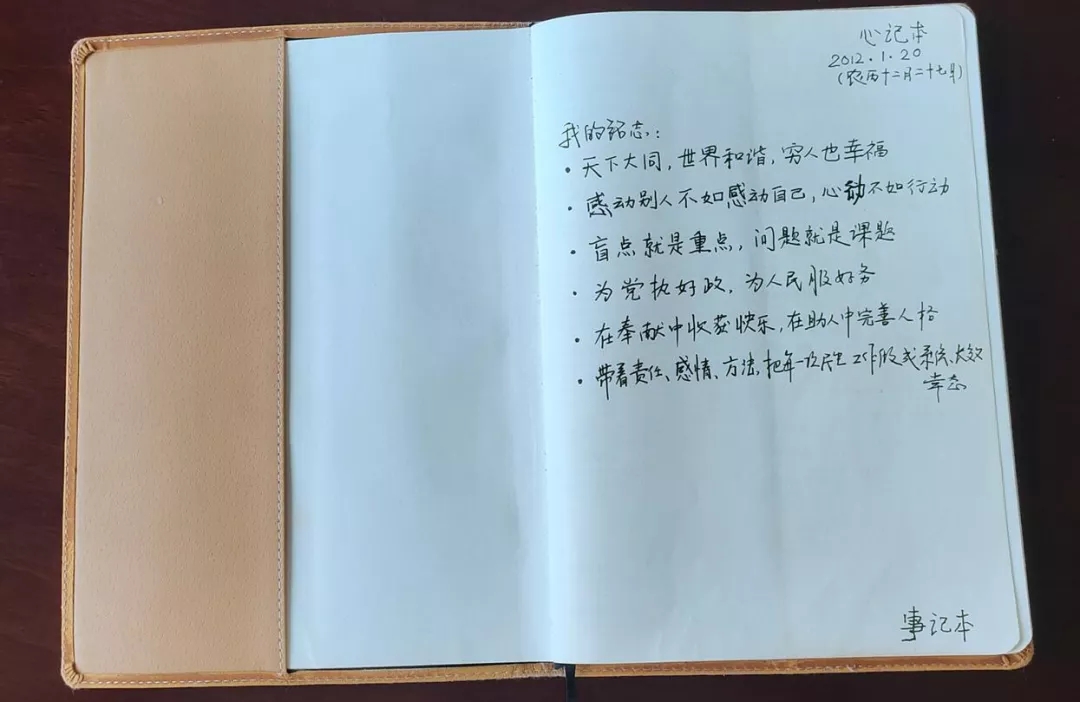 心记本
2012.1.20
(农历十二月二十七日)
我的铭志：
·天下大同，世界和谐，穷人也幸福
·感动别人不如感动自己，心动不如行动
·盲点就是重点，问题就是课题
·为党执好政，为人民服好务
·在奉献中收获快乐，在助人中完善人格
·带着责任、感情、方法，把每一次民生工作做成系统、长效
事记本